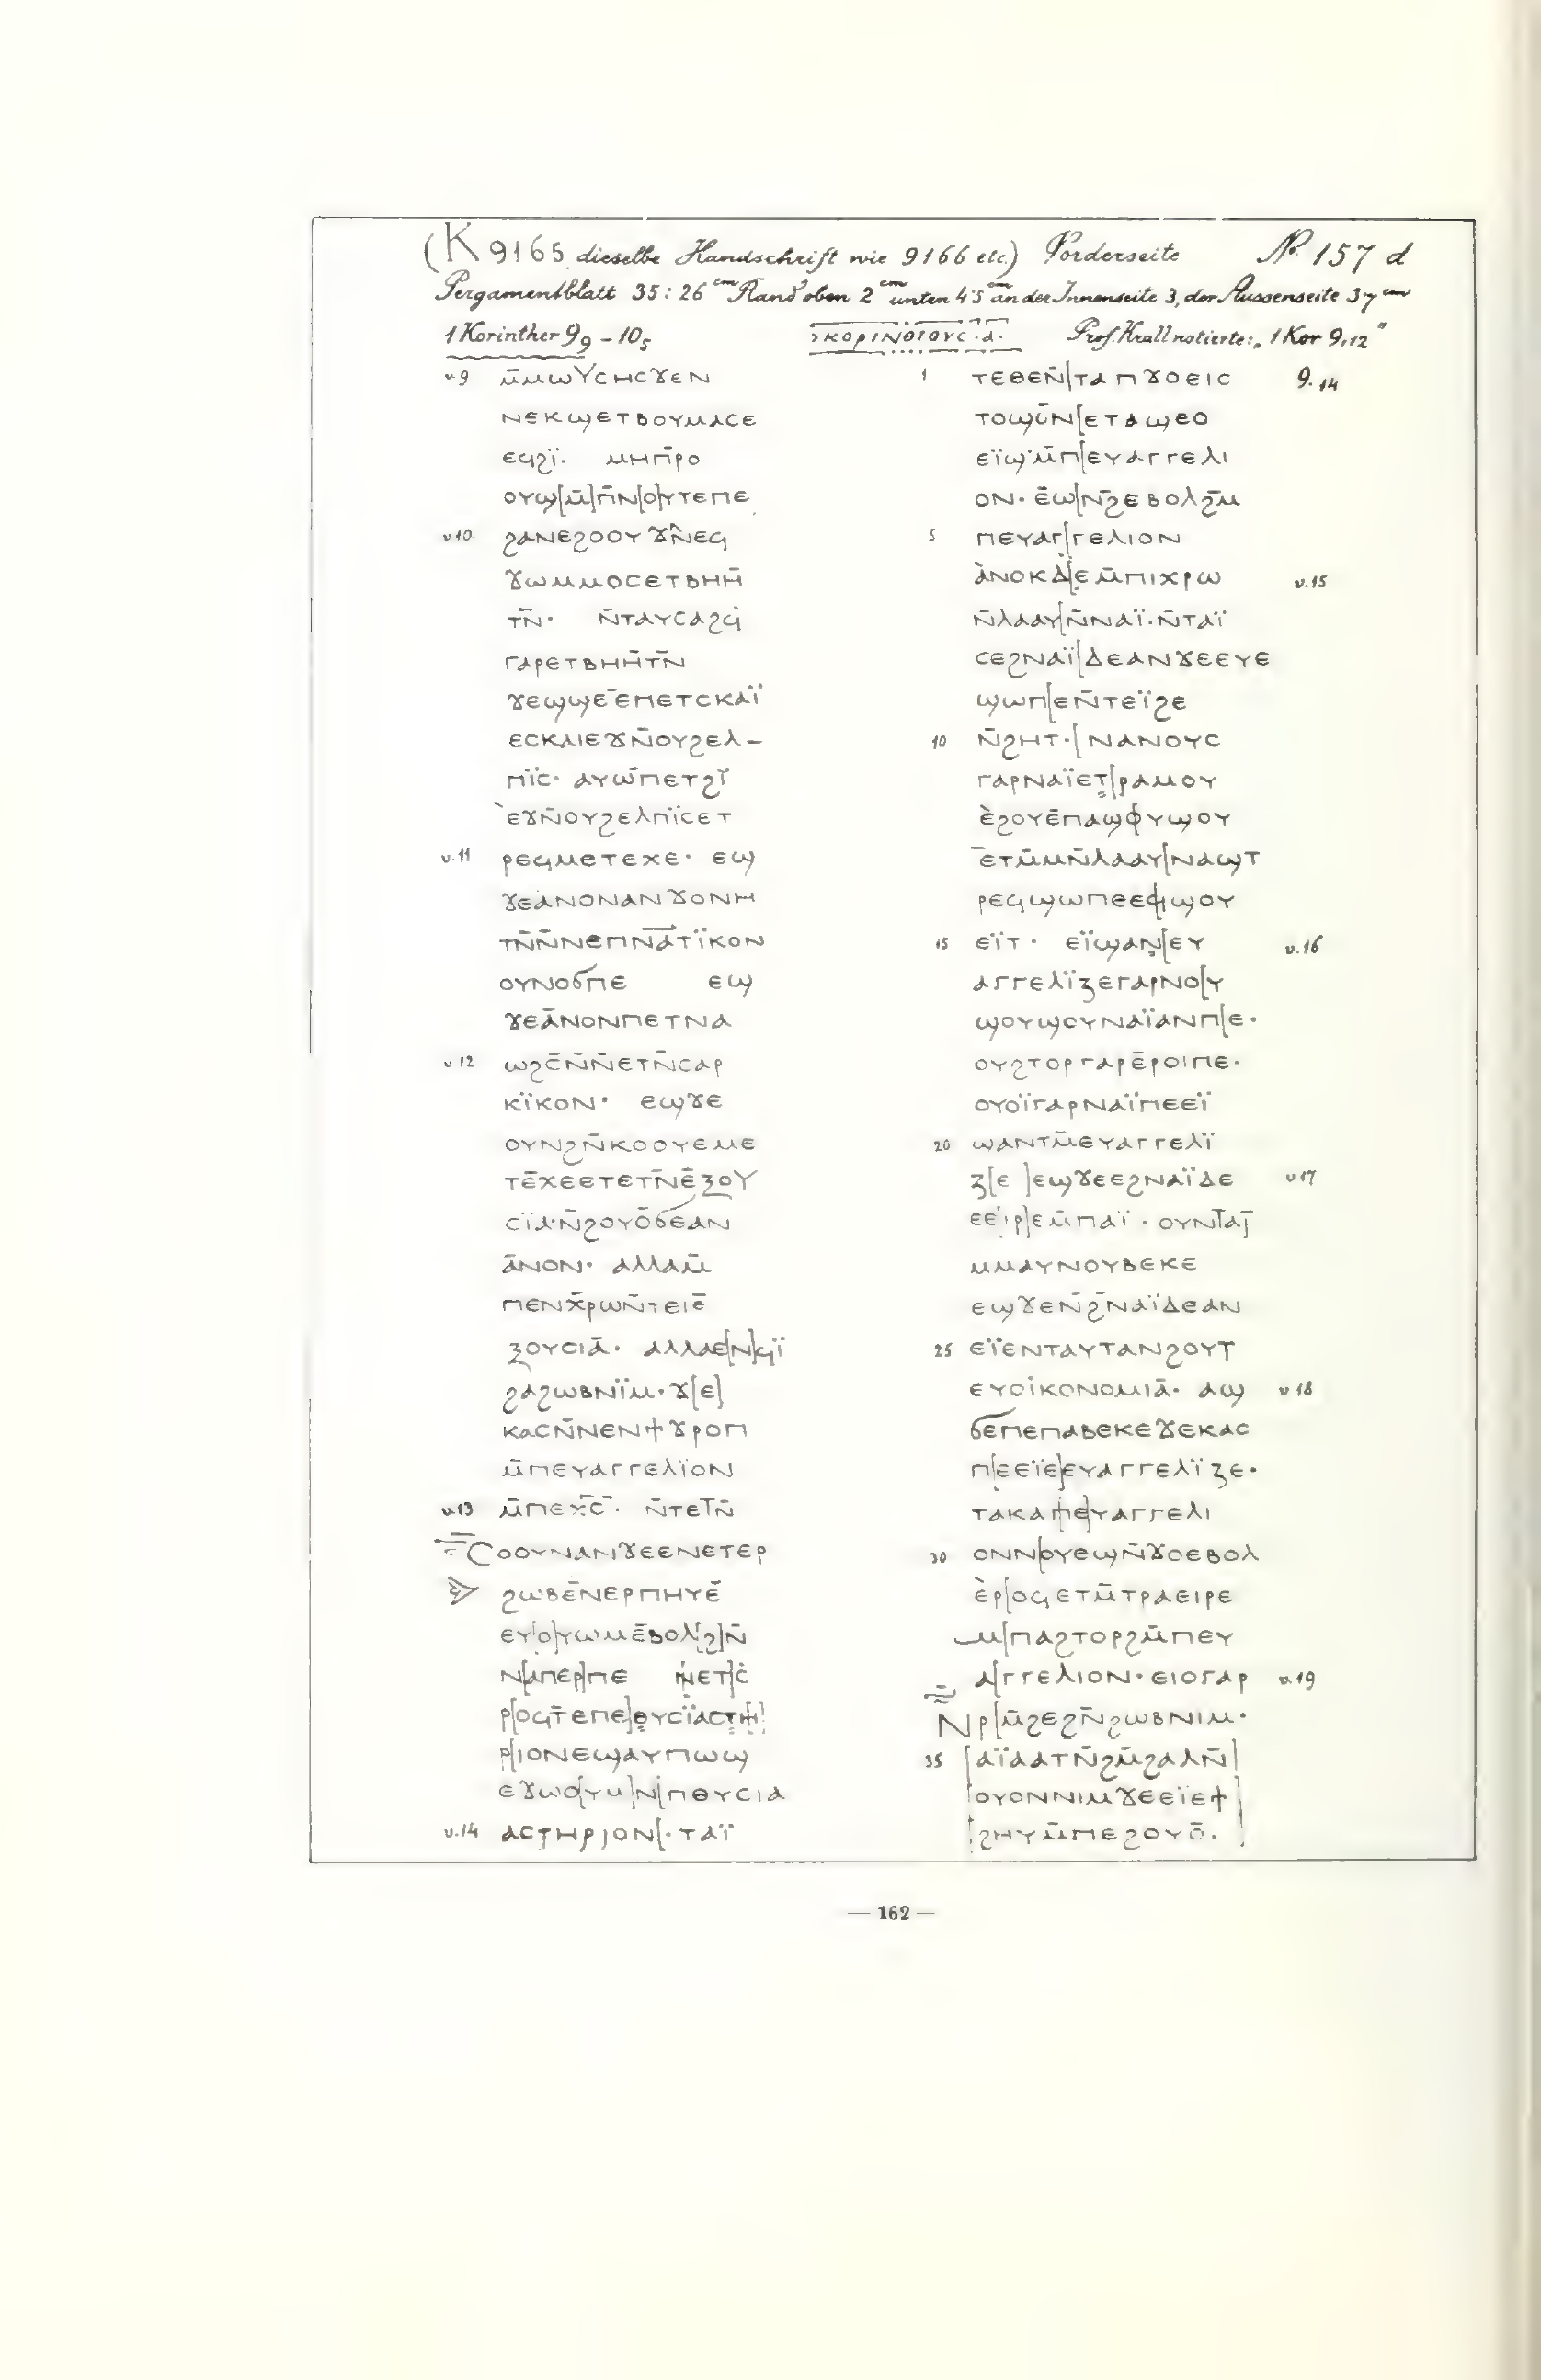 (K 9165 dieselbe Handschrift wie 9166 etc.) Vorderseite № 157 d
Pergamentblatt 35 : 26 cm Rand oben 2 cm unten 4·5 cm an der Innenseite 3, der Aussenseite 3·7 cm
1 Korinther 9₉ – 10₅ ⲕⲟⲣⲓⲛⲑⲓⲟⲩⲥ·ⲁ· Prof. Krall notierte: „1 Kor 9,12"
v.9 ⲙ̄ⲙⲱⲩⲥⲏⲥϫⲉⲛ
ⲛⲉⲕϣⲉⲧⲃⲟⲩⲙⲁⲥⲉ
ⲉϥϩⲓ̈· ⲙⲏⲡ̄ⲣⲟ
ⲟⲩϣ[ⲙ̄]ⲡ̄ⲛ[ⲟ]ⲩⲧⲉⲡⲉ
v.10 ϩⲁⲛⲉϩⲟⲟⲩ ϫⲛ̄ⲉϥ
ϫⲱⲙⲙⲟⲥⲉⲧⲃⲏⲏ̄
ⲧⲛ̄· ⲛ̄ⲧⲁⲩⲥⲁϩϥ̇
ⲅⲁⲣⲉⲧⲃⲏⲏ̄ⲧⲛ̄
ϫⲉϣϣⲉ̄ⲉⲡⲉⲧⲥⲕⲁⲓ̈
ⲉⲥⲕⲁⲓⲉϫⲛ̄ⲟⲩϩⲉⲗ–
ⲡⲓ̈ⲥ· ⲁⲩⲱ̄ⲡⲉⲧϩⲓ̈
ⲉ̀ϫⲛ̄ⲟⲩϩⲉⲗⲡⲓ̈ⲥⲉⲧ
v.11 ⲣⲉϥⲙⲉⲧⲉⲭⲉ· ⲉϣ
ϫⲉⲁⲛⲟⲛⲁⲛϫⲟⲛⲏ
ⲧⲛ̄ⲛ̄ⲛⲉⲡⲛ̄ⲁ̄ⲧⲓ̈ⲕⲟⲛ
ⲟⲩⲛⲟϭⲡⲉ ⲉϣ
ϫⲉⲁ̄ⲛⲟⲛⲡⲉⲧⲛⲁ
v.12 ⲱϩⲥ̄ⲛ̄ⲛ̄ⲉⲧⲛ̄ⲥⲁⲣ
ⲕⲓ̈ⲕⲟⲛ· ⲉϣϫⲉ
ⲟⲩⲛϩⲛ̄ⲕⲟⲟⲩⲉⲙⲉ
ⲧⲉ̄ⲭⲉⲉⲧⲉⲧⲛ̄ⲉ̄ⲝⲟⲩ
ⲥⲓ̈ⲁ·ⲛ̄ϩⲟⲩⲟ̄ϭⲉⲁⲛ
ⲁ̄ⲛⲟⲛ· ⲁⲗⲗⲁⲙ̄
ⲡⲉⲛⲭ̄ⲣⲱⲛ̄ⲧⲉⲓⲉ̄
ⲝⲟⲩⲥⲓⲁ̄· ⲁⲗⲗⲁⲉ[ⲛ]ϥⲓ̈
ϩⲁϩⲱⲃⲛⲓ̈ⲙ·ϫ[ⲉ]
ⲕⲁⲥⲛ̄ⲛⲉⲛϯϫⲣⲟⲡ
ⲙ̄ⲡⲉⲩⲁⲅⲅⲉⲗⲓ̈ⲟⲛ
v.13 ⲙ̄ⲡⲉⲭ̄ⲥ̄· ⲛ̄ⲧⲉⲧⲛ̄
ⲥⲟⲟⲩⲛⲁⲛϫⲉⲉⲛⲉⲧⲉⲣ
ϩⲱⲃⲉ̄ⲛⲉⲣⲡⲏⲩⲉ̄
ⲉⲩ[ⲟ]ⲩⲱⲙⲉ̄ⲃⲟⲗ[ϩ]ⲛ̄
ⲛ[ⲁⲡⲉⲣ]ⲡⲉ ⲛ[ⲉⲧ]ⲥ̇
ⲣ[ⲟϥⲧ̄ⲉⲡⲉ]ⲑⲩⲥⲓ̈ⲁⲥⲧ[ⲏ]
ⲣ[ⲓⲟⲛⲉϣⲁⲩⲡⲱϣ
ⲉϫⲱⲟ[ⲩⲙ]ⲛ[ⲡⲑⲩⲥⲓⲁ
v.14 ⲁⲥⲧⲏⲣⲓⲟⲛ[· ⲧⲁⲓ̈
1 ⲧⲉⲑⲉⲛ̄[ⲧⲁⲡϫⲟⲉⲓⲥ 9.14
ⲧⲟϣⲥ̄ⲛ[ⲉⲧⲁϣⲉⲟ
ⲉⲓ̈ϣ·ⲙ̄ⲡ[ⲉⲩⲁⲅⲅⲉⲗⲓ
ⲟⲛ· ⲉ̄ⲱ[ⲛ̄ϩⲉⲃⲟⲗϩⲙ̄
5 ⲡⲉⲩⲁⲅ[ⲅⲉⲗⲓⲟⲛ
ⲁ̀ⲛⲟⲕⲇ[ⲉⲙ̄ⲡⲓⲭⲣⲱ v.15
ⲛ̄ⲗⲁⲁⲩ[ⲛ̄ⲛⲁⲓ̈·ⲛ̄ⲧⲁⲓ̈
ⲥⲉϩⲛⲁⲓ̈[ⲇⲉⲁⲛϫⲉⲉⲩⲉ
ϣⲱⲡ[ⲉⲛ̄ⲧⲉⲓ̈ϩⲉ
10 ⲛ̄ϩⲏⲧ·[ⲛⲁⲛⲟⲩⲥ
ⲅⲁⲣⲛⲁⲓ̈ⲉⲧ[ⲣⲁⲙⲟⲩ
ⲉ̀ϩⲟⲩⲉ̄ⲡⲁϣⲫⲩϣⲟⲩ
ⲉ̄ⲧⲙ̄ⲙⲛ̄ⲗⲁⲁⲩ[ⲛⲁϣⲧ
ⲣⲉϥϣⲱⲡⲉⲉϥϣⲟⲩ
15 ⲉⲓ̈ⲧ· ⲉⲓ̈ϣⲁⲛ[ⲉⲩ v.16
ⲁⲅⲅⲉⲗⲓ̈ⲍⲉⲅⲁⲣⲛⲟ[ⲩ
ϣⲟⲩϣⲟⲩⲛⲁⲓ̈ⲁⲛⲡ[ⲉ·
ⲟⲩϩⲧⲟⲣⲅⲁⲣⲉ̄ⲣⲟⲓⲡⲉ·
ⲟⲩⲟⲓ̈ⲅⲁⲣⲛⲁⲓ̈ⲡⲉⲉⲓ̈
20 ⲱⲁⲛⲧⲙ̄ⲉⲩⲁⲅⲅⲉⲗⲓ̈
ⲍ[ⲉ ]ⲉϣϫⲉⲉϩⲛⲁⲓ̈ⲇⲉ v.17
ⲉⲉⲓⲣ[ⲉⲙ̄ⲡⲁⲓ̈· ⲟⲩⲛⲧⲁⲓ̈
ⲙⲙⲁⲩⲛⲟⲩⲃⲉⲕⲉ
ⲉϣϫⲉⲛ̄ϩ̄ⲛⲁⲓ̈ⲇⲉⲁⲛ
25 ⲉⲓ̈ⲉⲛⲧⲁⲩⲧⲁⲛϩⲟⲩⲧ
ⲉⲩⲟⲓ̇ⲕⲟⲛⲟⲙⲓⲁ̄· ⲁϣ v.18
ϭⲉⲡⲉⲡⲁⲃⲉⲕⲉϫⲉⲕⲁⲥ
ⲡ[ⲉⲉⲓ̈ⲉ]ⲉⲩⲁⲅⲅⲉⲗⲓ̈ⲍⲉ·
ⲧⲁⲕⲁⲡ[ⲉ]ⲩⲁⲅⲅⲉⲗⲓ
30 ⲟⲛⲛ[ⲟⲩⲉϣⲛ̄ϫⲟⲉⲃⲟⲗ
ⲉ̀ⲣ[ⲟϥⲉⲧⲙ̄ⲧⲣⲁⲉⲓⲣⲉ
ⲙ[ⲡⲁϩⲧⲟⲣϩⲙ̄ⲡⲉⲩ
ⲁ[ⲅⲅⲉⲗⲓⲟⲛ·ⲉⲓⲟⲅⲁⲣ v.19
ⲛⲣ[ⲙ̄ϩⲉϩⲛ̄ϩⲱⲃⲛⲓⲙ·
35 [ⲁⲓ̈ⲁⲁⲧⲛ̄ϩⲙ̄ϩⲁⲗⲛ̄]
[ⲟⲩⲟⲛⲛⲓⲙϫⲉⲉⲓ̈ⲉϯ]
[ϩⲏⲩⲙ̄ⲡⲉϩⲟⲩⲟ̄· ]
— 162 —